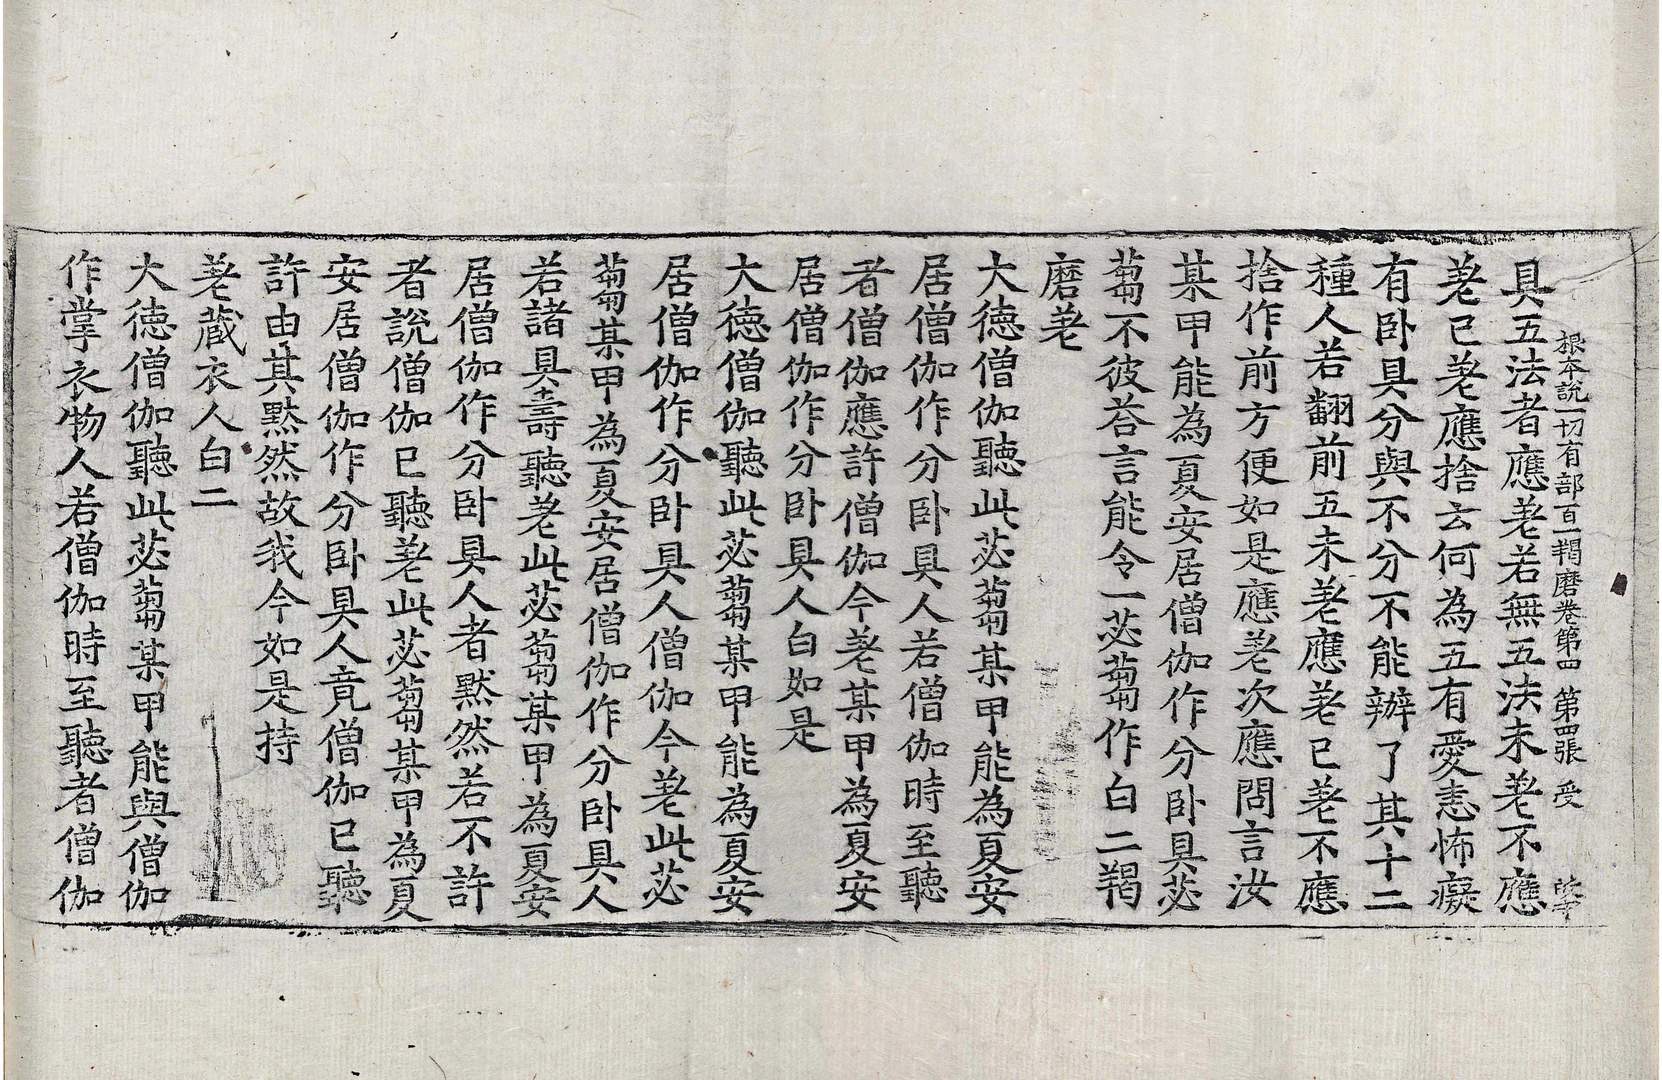 根本說一切有部百一羯磨卷第四 第四張 受
具五法者應差若無五法未差不應
差已差應捨云何為五有愛恚怖癡
有卧具分與不分不能辦了其十二
種人若翻前五未差應差已差不應
捨作前方便如是應差次應問言汝
某甲能為夏安居僧伽作分卧具苾
蒭不彼荅言能令一苾蒭作白二羯
磨差
大德僧伽聽此苾蒭某甲能為夏安
居僧伽作分卧具人若僧伽時至聽
者僧伽應許僧伽今差某甲為夏安
居僧伽作分卧具人白如是
大德僧伽聽此苾蒭某甲能為夏安
居僧伽作分卧具人僧伽今差此苾
蒭某甲為夏安居僧伽作分卧具人
若諸具壽聽差此苾蒭某甲為夏安
居僧伽作分卧具人者默然若不許
者說僧伽已聽差此苾蒭某甲為夏
安居僧伽作分卧具人竟僧伽已聽
許由其默然故我今如是持
差藏衣人白二
大德僧伽聽此苾蒭某甲能與僧伽
作掌衣物人若僧伽時至聽者僧伽